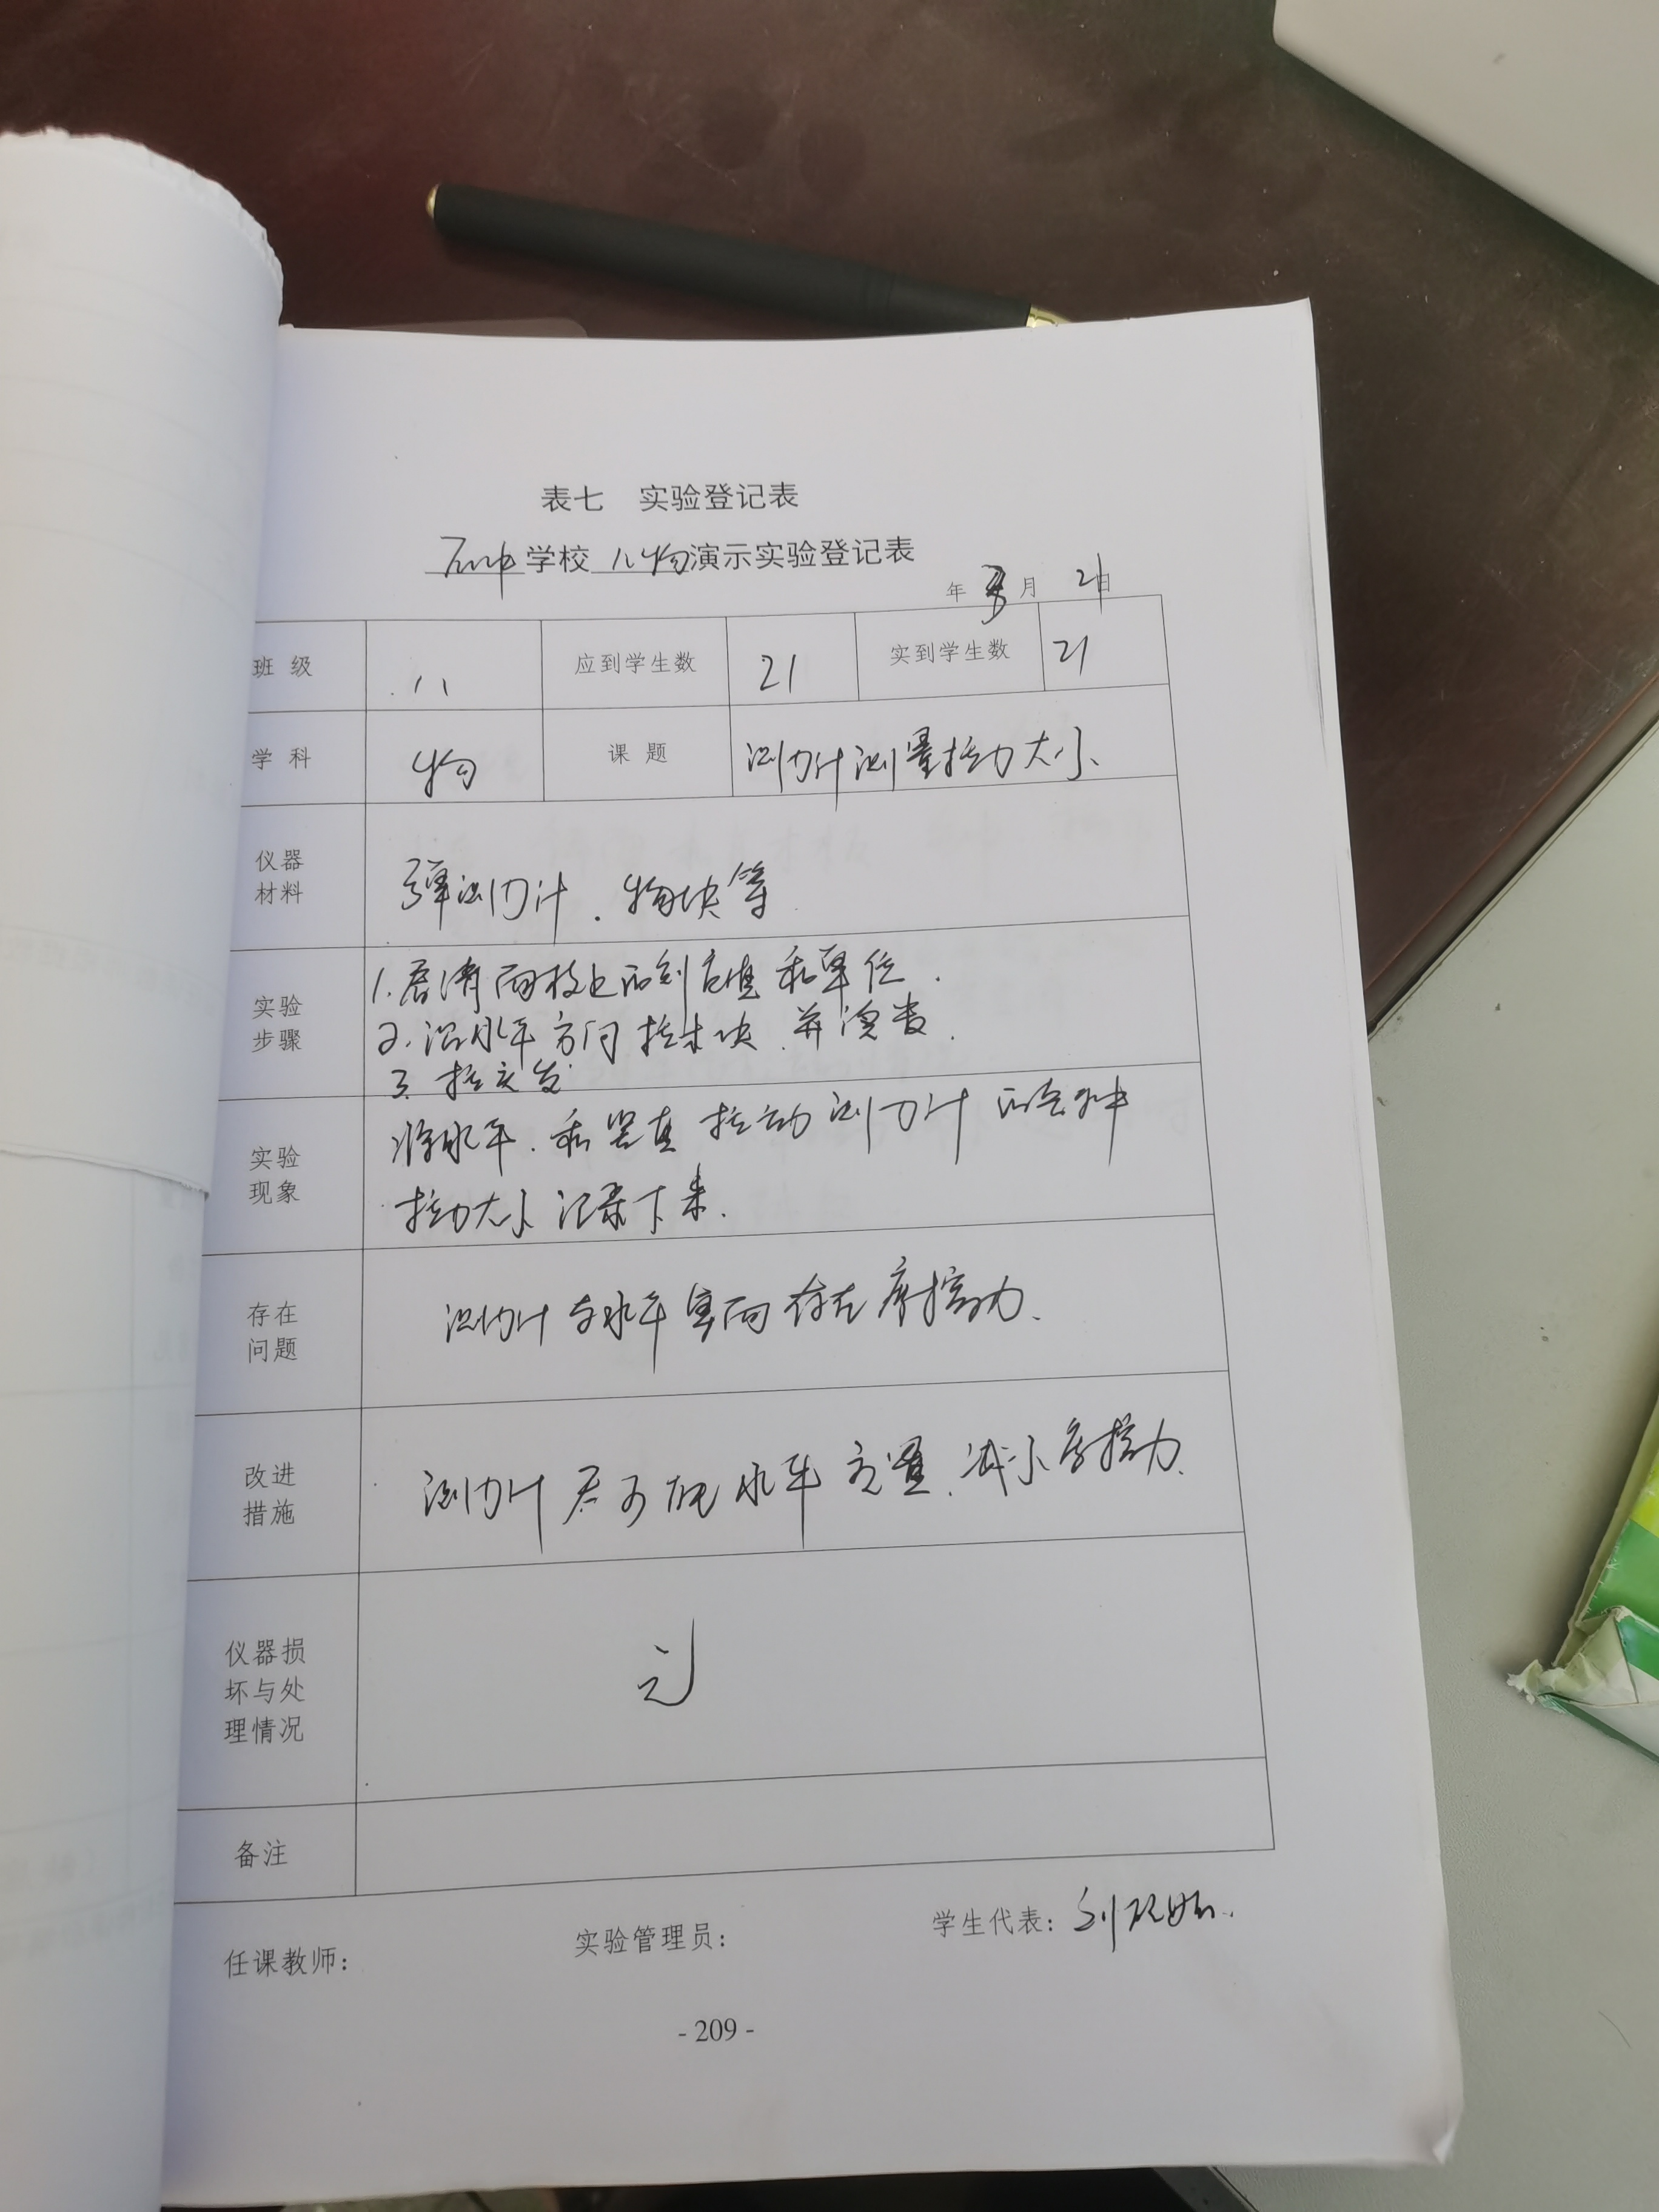 表七 实验登记表
学校 八物演示实验登记表
年 月 21日
班级 八 应到学生数 21 实到学生数 21
学科 物 课题 测力计测量拉力大小
仪器材料 弹测力计、物块等
实验步骤 1.看清面板上的刻度值和单位.
2.沿水平方向拉木块.并读数.
3.
实验现象 将水平.和竖直拉动测力计的
拉力大小记录下来.
存在问题 测力计与水平桌面存在摩擦力.
改进措施 测力计尽可能水平放置.减小摩擦力.
仪器损坏与处理情况
备注
任课教师: 实验管理员: 学生代表: 刘
- 209 -